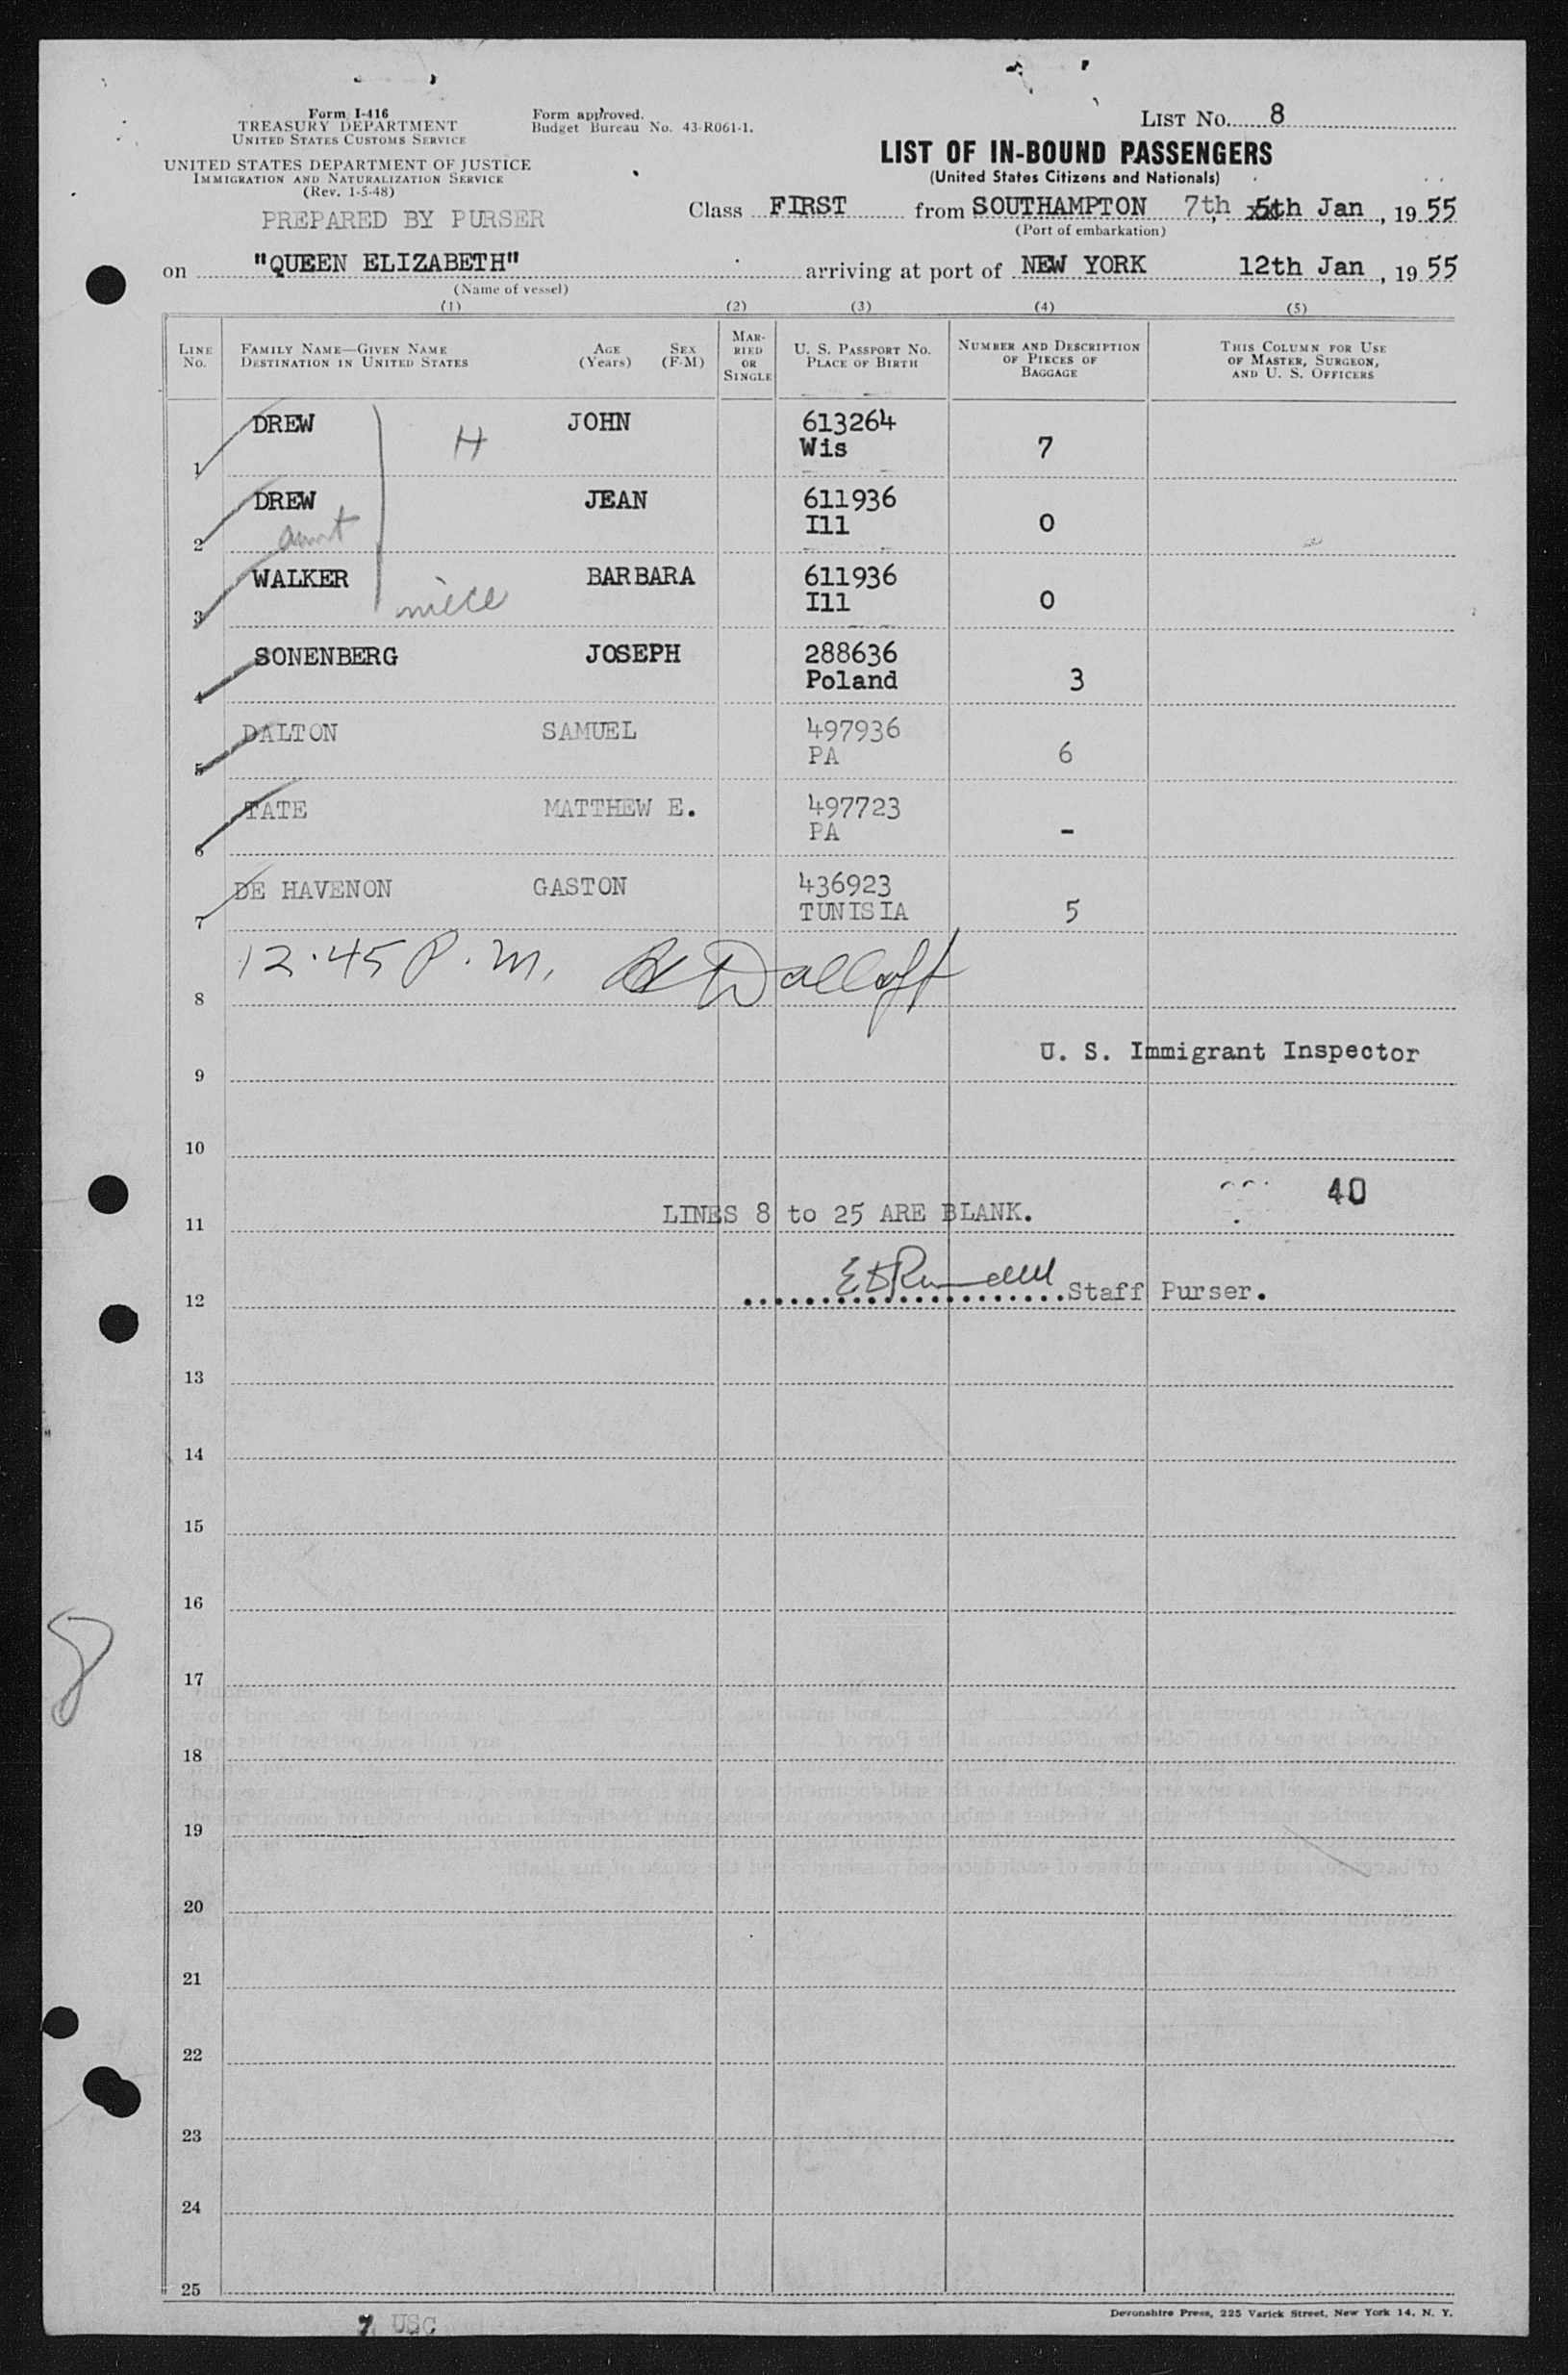 Form I-416
TREASURY DEPARTMENT
UNITED STATES CUSTOMS SERVICE
UNITED STATES DEPARTMENT OF JUSTICE
IMMIGRATION AND NATURALIZATION SERVICE
(Rev. 1-5-48)
PREPARED BY PURSER
Form approved.
Budget Bureau No. 43-R061-1.
LIST NO. 8
LIST OF IN-BOUND PASSENGERS
(United States Citizens and Nationals)
Class FIRST from SOUTHAMPTON 7th, 5th Jan, 1955
(Port of embarkation)
on "QUEEN ELIZABETH" arriving at port of NEW YORK 12th Jan, 1955
(Name of vessel)
(1) (2) (3) (4) (5)
LINE NO. FAMILY NAME—GIVEN NAME DESTINATION IN UNITED STATES AGE (Years) SEX (F-M) MARRIED OR SINGLE U. S. PASSPORT NO. PLACE OF BIRTH NUMBER AND DESCRIPTION OF PIECES OF BAGGAGE THIS COLUMN FOR USE OF MASTER, SURGEON, AND U. S. OFFICERS
DREW JOHN 613264
1 H Wis 7
DREW JEAN 611936
2 aunt Ill 0
WALKER BARBARA 611936
3 niece Ill 0
SONENBERG JOSEPH 288636
4 Poland 3
DALTON SAMUEL 497936
5 PA 6
TATE MATTHEW E. 497723
6 PA -
DE HAVENON GASTON 436923
7 TUNISIA 5
12.45 P.M.
8
U. S. Immigrant Inspector
9
10
40
11 LINES 8 to 25 ARE BLANK.
12 Staff Purser.
13
14
15
16
8
17
18
19
20
21
22
23
24
25
Devonshire Press, 225 Varick Street, New York 14, N. Y.
7 USC